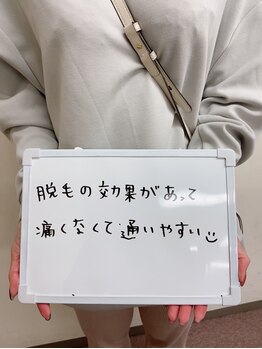 脱毛の効果があって
痛くなくて通いやすい